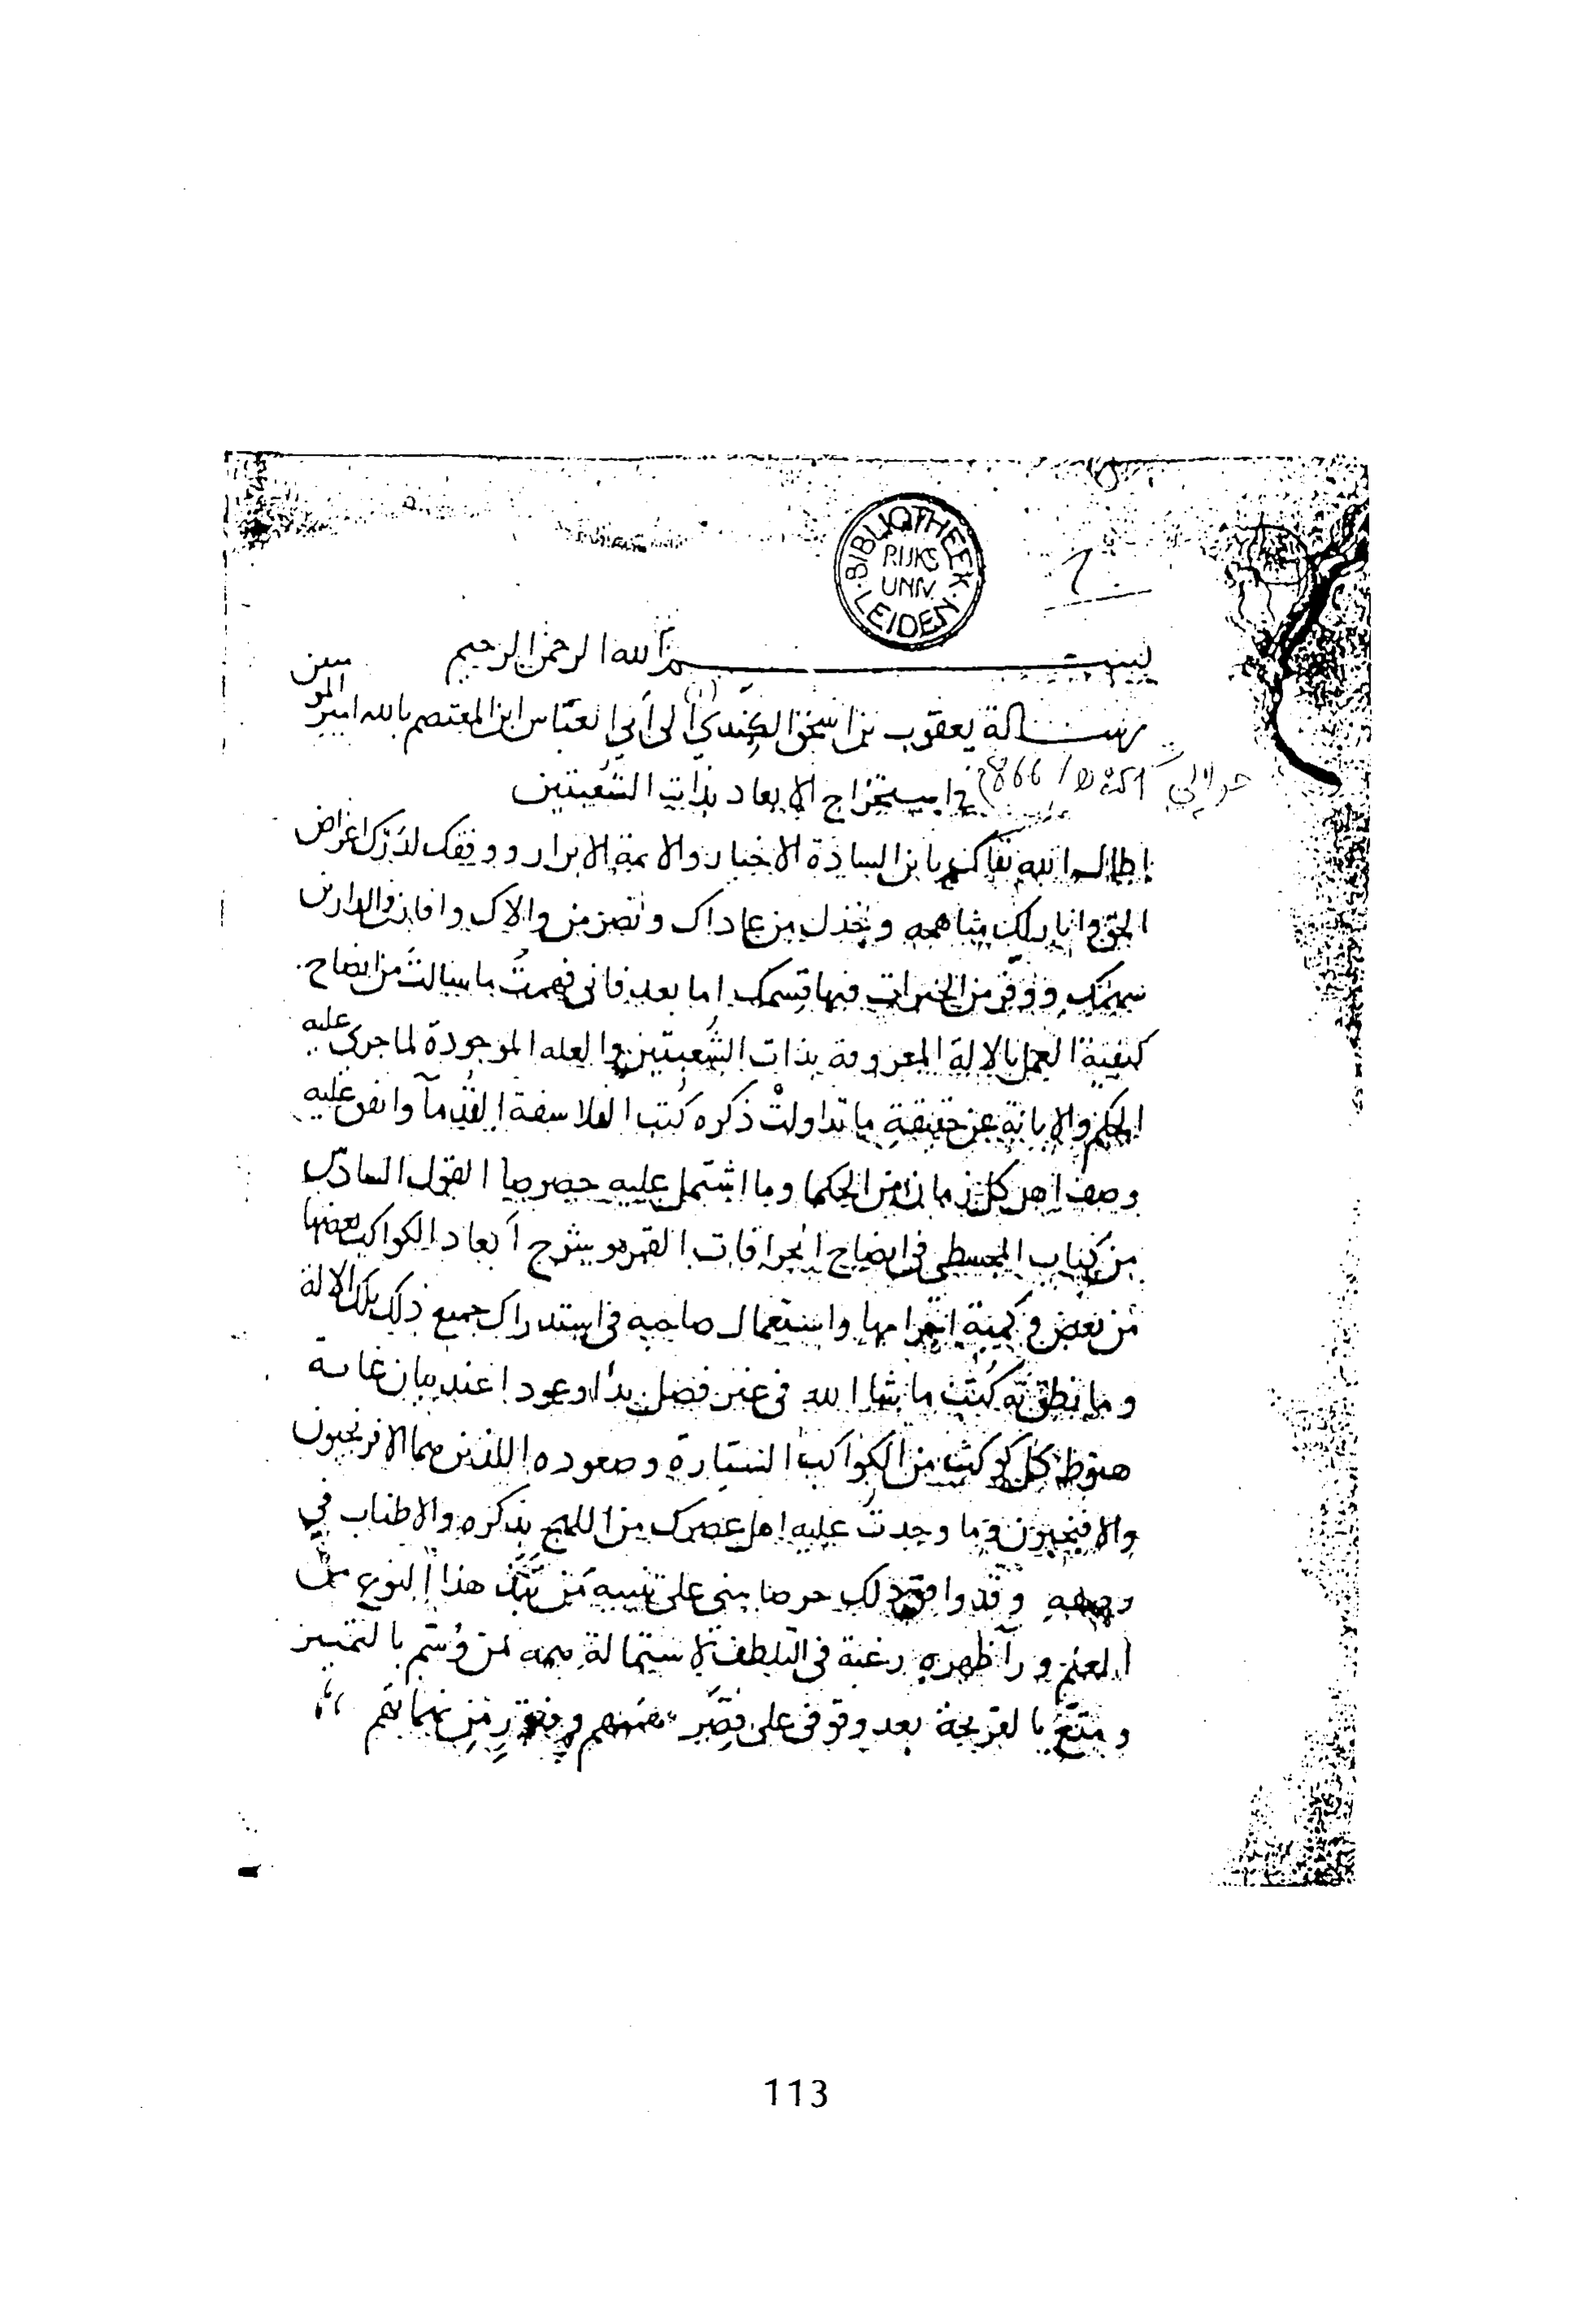 BIBLIOTHEEK
RIJKS
UNIV.
LEIDEN
بسم الله الرحمن الرحيم
رسالة يعقوب بن اسحق الكندي الى أبي العباس ابن المعتصم بالله امير المومنين
في استخراج الابعاد بذات الشعبتين
حوالي
اطال الله بقاك يا بن السادة الاخيار والايمة الابرار ووفقك لدرك اغراض
الحق وخذل من عاداك ونصر من والاك في الدارين
ووفر من الخيرات فيها قسمك اما بعد فانى فهمت ما سالت من ايضاح
كيفية العمل بالالة المعروفة بذات الشعبتين والعله الموجودة لما جرى عليه
الحكم والابانة عن حقيقة ما تداولت ذكره كتب الفلاسفة القدمآ واتفق عليه
وصف اهل كل زمان من الحكما وما اشتمل عليه القول السادس
من كتاب المجسطى فى ايضاح انحرافات القمر وشرح أبعاد الكواكب بعضها
من بعض وكمية اجرامها واستعمال صاحبه فى استدراك جميع ذلك بتلك الالة
وما نطق به كتب ما شا الله فى غير فصل بدأ وعودا عند بيان غاية
هبوط كل كوكب من الكواكب السيارة وصعوده اللذين هما الافريجيون
والافيجيون وما وجدت عليه اهل عصرك من اللهج بذكره والاطناب في
وصفه وقد وافق ذلك حرصا منى على تنبيه من هذا النوع من
العلم رغبة فى التلطف لاستمالة من وُسم بالتمييز
ومتع بالقريحة بعد وقوفى على قِصَر هممهم وفتور
113